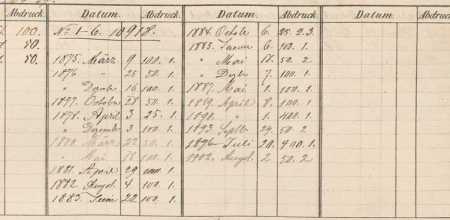 Abdruck. Datum. Abdruck. Datum. Abdruck. Datum. Abdruck.
100. No 1-6. 10918. 1884. Octobr 6. 25. 2.3.
50. 1885. Januar 6. 102. 1.
50. 1875. März 9 100. 1. " Mai 18. 50. 2
1876 " 25 50. 1. " Dezbr 7. 100. 1.
" Dezmbr 16 100. 1. 1887. Mai 1. 100. 1.
1877. Octobr 28 50. 1. 1889. April 8. 100. 1
1878. April 3 25. 1. 1890. " 4. 100. 1.
" Dezember 3 100. 1. 1893. Septbr 29. 50. 2
1880. März 22 50. 1. 1896. Juli 20. 400. 1.
" Mai 18 100. 1. 1902. August 2. 50. 2.
1881. August 29 1.
1882. August 4 100. 1.
1883. Juni 22 100. 1.